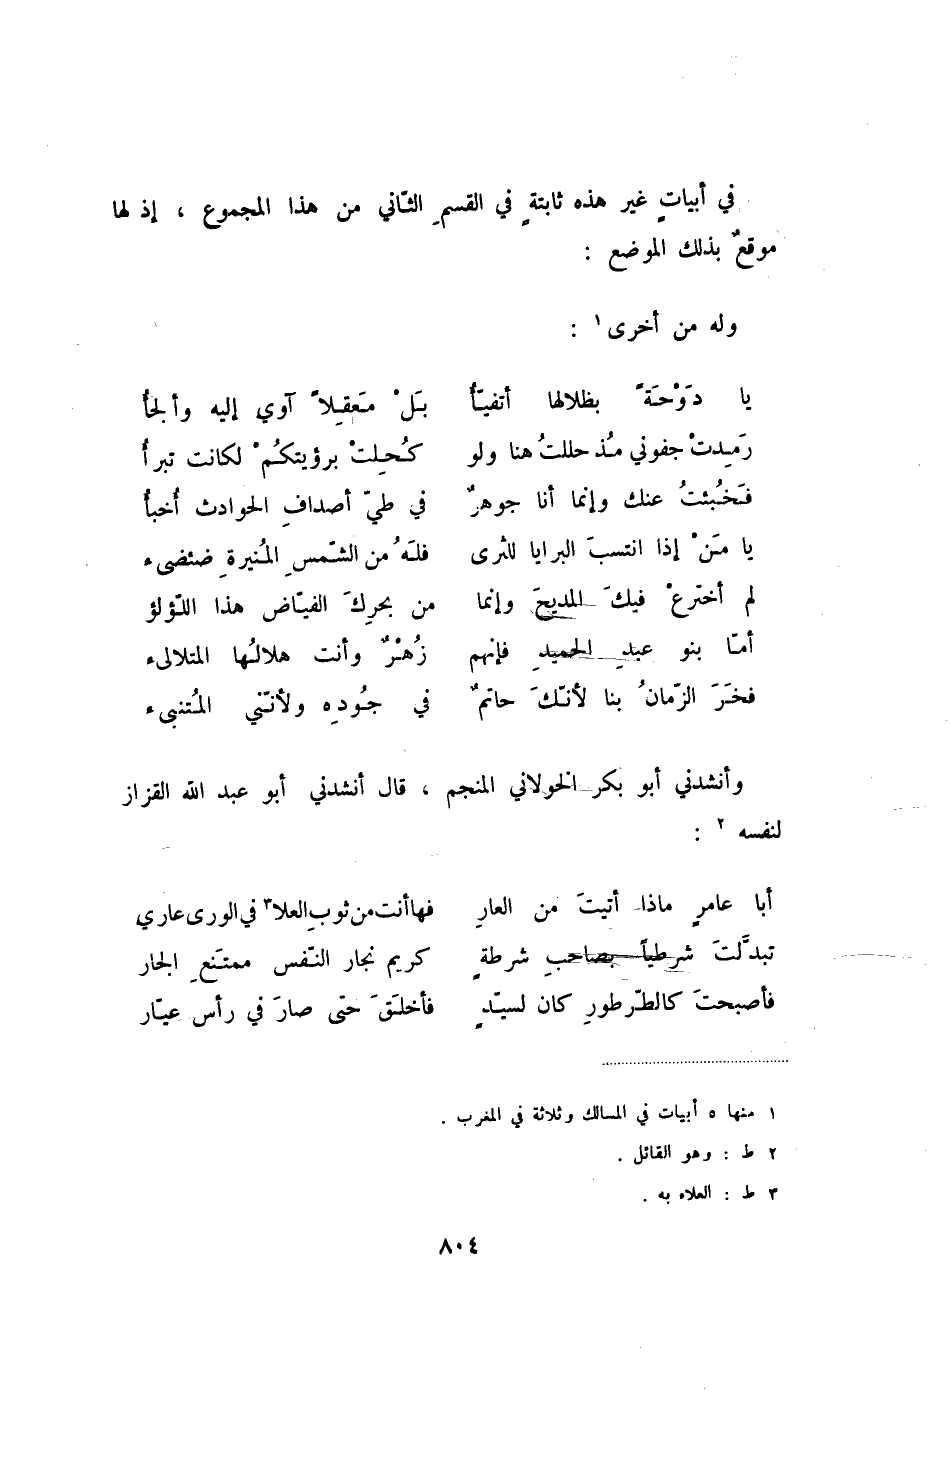 في أبياتٍ غير هذه ثابتةٍ في القسمِ الثّاني من هذا المجموع ، إذ لها
موقعٌ بذلك الموضع :
وله من أخرى ١ :
يا دَوْحَةً بظلالها أتفيّأُ بَلْ مَعقِلاً آوي إليه وألجأُ
رَمِدتْ جفوني مُذ حللتُ هنا ولو كُحِلتْ برؤيتكُمْ لكانت تبرأُ
فَخُبئتُ عنك وإنما أنا جوهرٌ في طيّ أصدافِ الحوادث أُخبأُ
يا مَنْ إذا انتسبَ البرايا للثرى فلهُ من الشّمسِ المُنيرةِ ضئضىء
لم أخترعْ فيكَ المديحَ وإنما من بحرِكَ الفيّاض هذا اللّؤلؤ
أمّا بنو عبدِ الحميدِ فإنهم زُهْرٌ وأنت هلالُها المتلالىء
فخَرَ الزّمانُ بنا لأنّكَ حاتمٌ في جُودِه ولأنّني المُتنبىء
وأنشدني أبو بكر الخولاني المنجم ، قال أنشدني أبو عبد الله القزاز
لنفسه ٢ :
أبا عامرٍ ماذا أتيتَ من العارِ فهاأنت من ثوبِ العلا٣ في الورى عاري
تبدَّلتَ شرطياً بصاحبِ شرطةٍ كريم نجار النّفس ممتَنعِ الجار
فأصبحتَ كالطّرطورِ كان لسيّدٍ فأخلَقَ حتّى صارَ في رأس عيّار
١ منها ٥ أبيات في المسالك وثلاثة في المغرب .
٢ ط : وهو القائل .
٣ ط : العلاء به .
٨٠٤